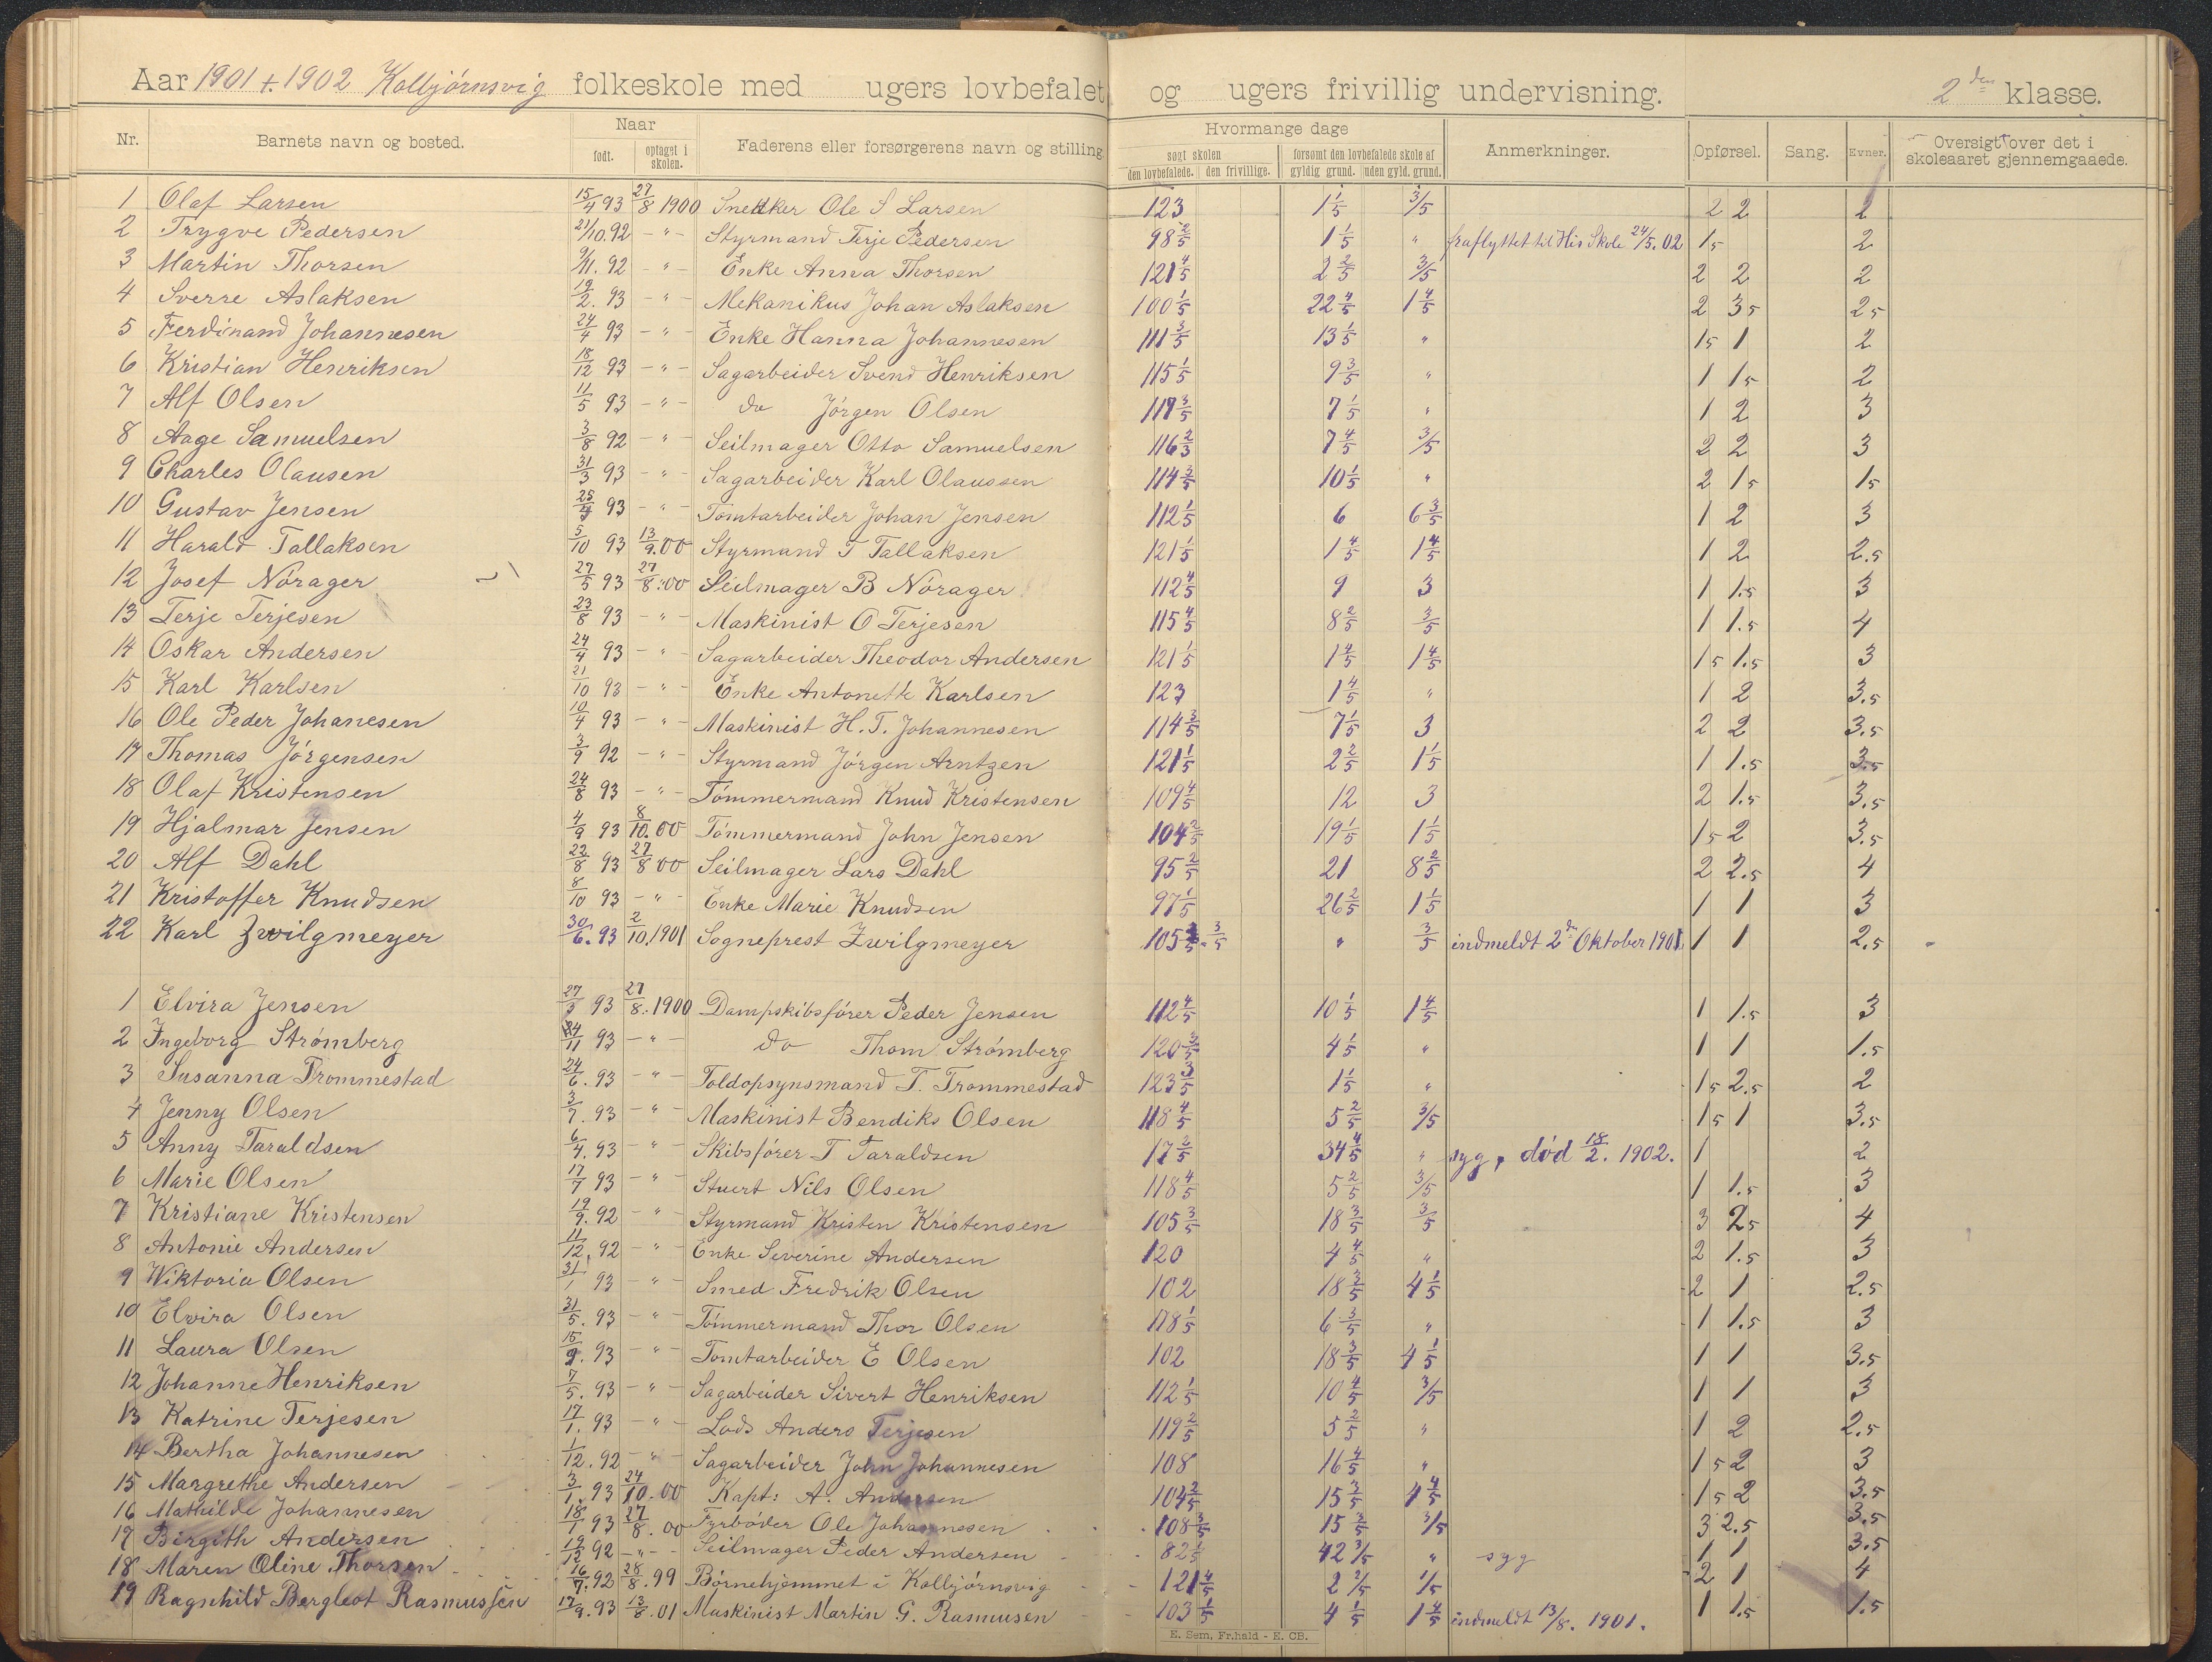 Aar 1901 + 1902 Kolbjørnsvig folkeskole med ugers lovbefalet og ugers frivillig undervisning. 2den klasse.
Nr. Barnets navn og bosted. Naar Faderens eller forsørgerens navn og stilling. Hvormange dage Anmerkninger. Opførsel. Sang. Evner. Oversigt over det i skoleaaret gjennemgaaede.
født. optaget i skolen. søgt skolen forsømt den lovbefalede skole af
den lovbefalede. den frivillige. gyldig grund. uden gyld. grund.
1 Olaf Larsen 15/4 93 27/8 1900 Snekker Ole S Larsen 123 1 1/5 3/5 2 2 2
2 Trygve Pedersen 21/10. 92 - " - Styrmand Terje Pedersen 98 2/5 1 1/5 " fraflyttet til His Skole 24/5. 02 15 2
3 Martin Thorsen 9/11. 92 - " - Enke Anna Thorsen 121 4/5 2 2/5 3/5 2 2 2
4 Sverre Aslaksen 19/2. 93 - " - Mekanikus Johan Aslaksen 100 1/5 22 4/5 1 4/5 2 35 25
5 Ferdinand Johannesen 24/4 93 - " - Enke Hanna Johannesen 111 3/5 13 1/5 " 15 1 2
6 Kristian Henriksen 18/12 93 - " - Sagarbeider Svend Henriksen 115 1/5 9 3/5 " 1 15 2
7 Alf Olsen 11/5 93 - " - do Jørgen Olsen 117 3/5 7 1/5 " 1 2 3
8 Aage Samuelsen 3/8 92 - " - Seilmager Otto Samuelsen 116 2/3 7 4/5 3/5 2 2 3
9 Charles Olausen 31/3 93 - " - Sagarbeider Karl Olaussen 114 3/5 10 1/5 " 2 15 15
10 Gustav Jensen 93 - " - Tomtarbeider Johan Jensen 112 1/5 6 6 3/5 1 2 3
11 Harald Tallaksen 5/10 93 13/9. 00 Styrmand T Tallaksen 121 1/5 1 4/5 1 4/5 1 2 2.5
12 Josef Nørager 27/5 93 27/8. 00 Seilmager B Nørager 112 4/5 9 3 1 1.5 3
13 Terje Terjesen 23/8 93 - " - Maskinist O Terjesen 115 4/5 8 2/5 3/5 1 1.5 4
14 Oskar Andersen 24/4 93 - " - Sagarbeider Theodor Andersen 121 1/5 1 4/5 1 4/5 15 1.5 3
15 Karl Karlsen 21/10 93 - " - Enke Antonette Karlsen 123 1 4/5 " 1 2 3.5
16 Ole Peder Johanesen 10/4 93 - " - Maskinist H. T. Johannesen 114 3/5 7 1/5 3 2 2 3.5
17 Thomas Jørgensen 3/9 92 - " - Styrmand Jørgen Arntzen 121 1/5 2 2/5 1 1/5 1 1.5 3.5
18 Olaf Kristensen 24/8 93 - " - Tømmermand Knud Kristensen 109 4/5 12 3 2 1.5 3.5
19 Hjalmar Jensen 4/9 93 8/10. 00 Tømmermand John Jensen 104 2/5 19 1/5 1 1/5 15 2 3.5
20 Alf Dahl 22/8 93 27/8 00 Seilmager Lars Dahl 95 2/5 21 8 2/5 2 2.5 4
21 Kristoffer Knudsen 8/10 93 - " - Enke Marie Knudsen 97 1/5 26 2/5 1 1/5 1 1 3
22 Karl Zwilgmeyer 30/6. 93 2/10. 1901 Sogneprest Zwilgmeyer 105 3/5 " 3/5 indmeldt 2den Oktober 1901 1 1 2.5
1 Elvira Jensen 27/3 93 27/8. 1900 Dampskibsfører Peder Jensen 112 4/5 10 1/5 1 4/5 1 1.5 3
2 Ingeborg Strømberg 24/11 93 - " - do Thom Strømberg 120 3/5 4 1/5 " 1 1 1.5
3 Susanna Trommestad 24/6. 93 - " - Toldopsynsmand T. Trommestad 123 3/5 1 1/5 " 15 2.5 2
4 Jenny Olsen 3/7. 93 - " - Maskinist Bendiks Olsen 118 4/5 5 2/5 3/5 15 1 3.5
5 Anny Taraldsen 6/4. 93 - " - Skibsfører T Taraldsen 17 2/5 34 4/5 " syg, død 18/2. 1902. 1 2
6 Marie Olsen 17/7 93 - " - Stuert Nils Olsen 118 4/5 5 2/5 3/5 1 1.5 3
7 Kristiane Kristensen 19/9. 92 - " - Styrmand Kristen Kristensen 105 3/5 18 3/5 3/5 3 25 4
8 Antonie Andersen 11/12. 92 - " - Enke Severine Andersen 120 4 4/5 " 2 1.5 3
9 Wiktoria Olsen 31/1 93 - " - Smed Fredrik Olsen 102 18 3/5 4 1/5 2 1 2.5
10 Elvira Olsen 31/5. 93 - " - Tømmermand Thor Olsen 118 1/5 6 3/5 " 1 1.5 3
11 Laura Olsen 15/9. 93 - " - Tomtarbeider E Olsen 102 18 3/5 4 1/5 1 1 3.5
12 Johanne Henriksen 7/5. 93 - " - Sagarbeider Sivert Henriksen 112 1/5 10 4/5 3/5 1 1 3
13 Katrine Terjesen 17/1. 93 - " - Lods Anders Terjesen 119 2/5 5 2/5 " 1 2 2.5
14 Bertha Johannesen 1/12. 92 - " - Sagarbeider John Johannesen 108 16 4/5 " 15 2 3
15 Margrethe Andersen 3/1. 93 24/10. 00 Kapt: A. Andersen 104 2/5 15 3/5 4 4/5 15 2 3.5
16 Mathilde Johannesen 18/1 93 27/8. 00 Fyrbøder Ole Johannesen 108 3/5 15 3/5 3/5 3 2.5 3.5
17 Birgith Andersen 17/12 92 - " - Seilmager Peder Andersen 82 1/5 42 3/5 " syg 1 1 3.5
18 Maren Oline Thorsen 16/7. 92 28/8. 99 Børnehjemmet i Kolbjørnsvig 121 4/5 2 2/5 1/5 2 1 4
19 Ragnhild Bergleot Rasmussen 17/9. 93 13/8. 01 Maskinist Martin G. Rasmusen 103 1/5 4 1/5 1 4/5 indmeldt 13/8. 1901. 1 1.5 1.5
E. Sem, Fr.hald - E. CB.